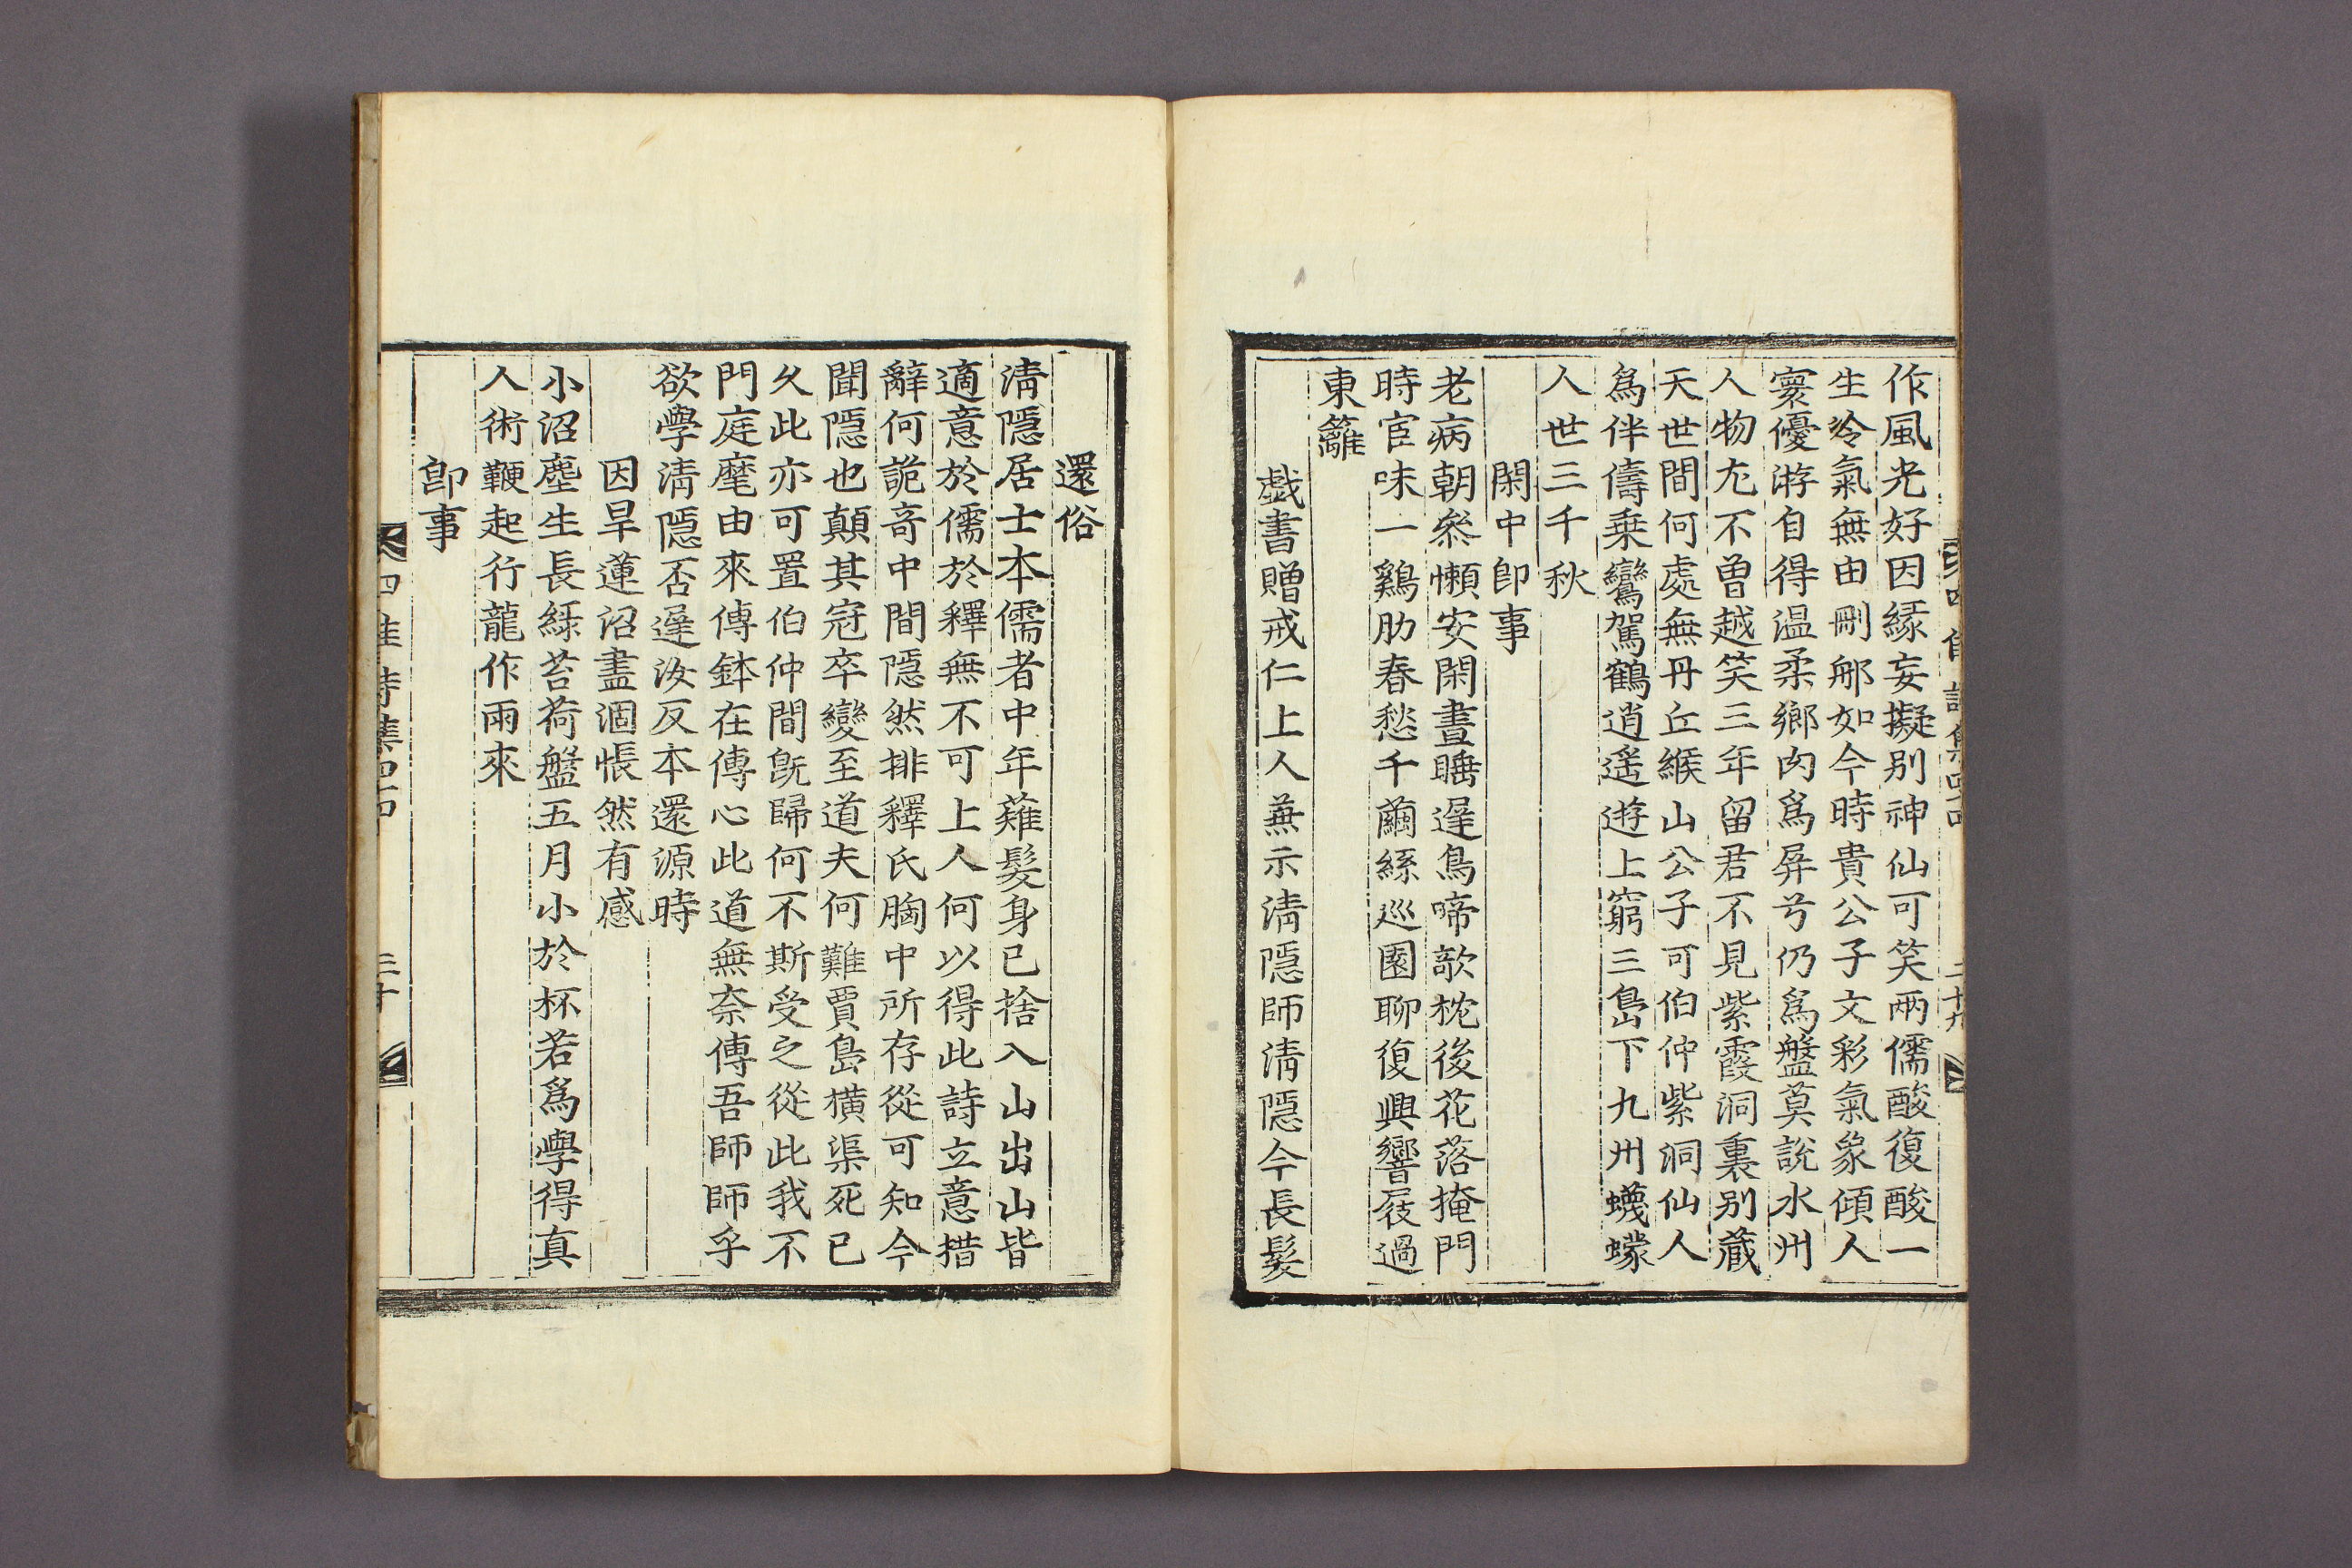 作風光好因緣妄擬别神仙可笑兩儒酸復酸一
生冷氣無由刪郍如今時貴公子文彩氣象傾人
寰優游自得温柔鄉肉爲屏兮仍爲盤莫說水州
人物尤不曾越笑三年留君不見紫霞洞裏别藏
天世間何處無丹丘緱山公子可伯仲紫洞仙人
爲伴儔乗鸞駕鶴逍遥遊上窮三島下九州蠛蠓
人世三千秋
閑中卽事
老病朝叅懶安閑晝睡遲鳥啼欹枕後花落掩門
時宦味一鷄肋春愁千繭絲巡園聊復興響屐過
東籬
戱書贈戒仁上人兼示淸隱師淸隱今長髮
還俗
淸隱居士本儒者中年薙髮身已捨入山出山皆
適意於儒於釋無不可上人何以得此詩立意措
辭何詭奇中間隱然排釋氏胸中所存從可知今
聞隱也顛其冠卒變至道夫何難賈島横渠死已
久此亦可置伯仲間旣歸何不斯受之從此我不
門庭麾由來傳鉢在傳心此道無奈傳吾師師乎
欲學淸隱否遲汝反本還源時
因旱蓮沼盡涸悵然有感
小沼塵生長綠苔荷盤五月小於杯若爲學得真
人術鞭起行龍作雨來
卽事
四佳詩集四
三十